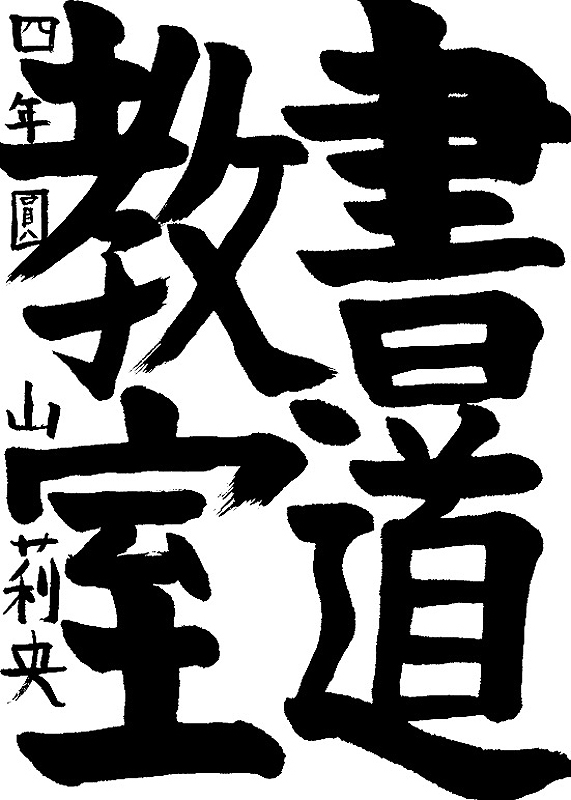 書道
教室
四年 圓山莉央